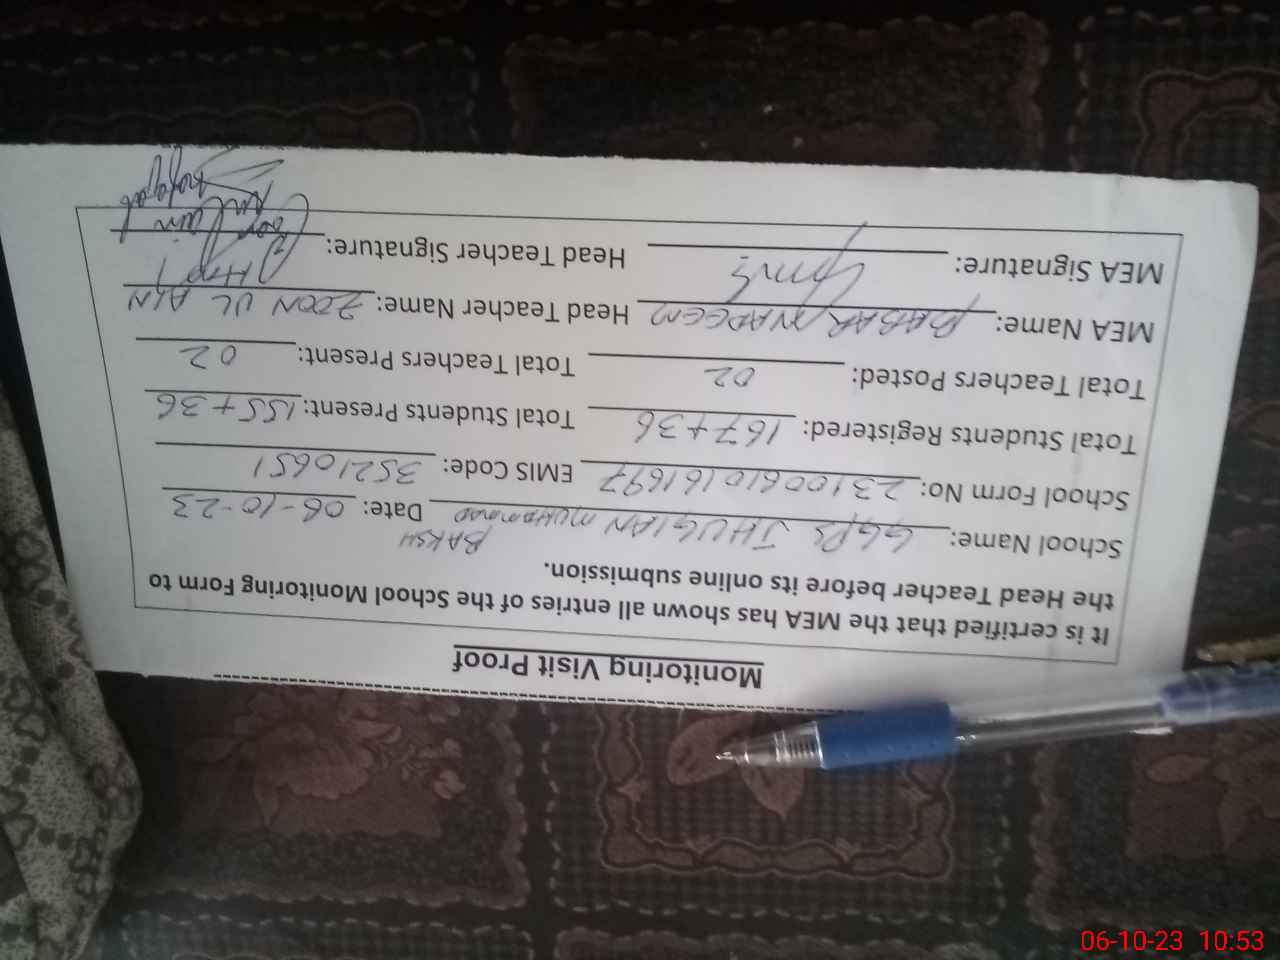 Monitoring Visit Proof
It is certified that the MEA has shown all entries of the School Monitoring Form to
the Head Teacher before its online submission.
BAKSH
School Name: GGPS JHUGIAN MUHAMMAD Date: 06-10-23
School Form No: 23100610161697 EMIS Code: 35210651
Total Students Registered: 167+36 Total Students Present: 155+36
Total Teachers Posted: 02 Total Teachers Present: 02
MEA Name: BABAR NADEEM Head Teacher Name: ZOON UL AIN
MEA Signature: Head Teacher Signature:
06-10-23 10:53